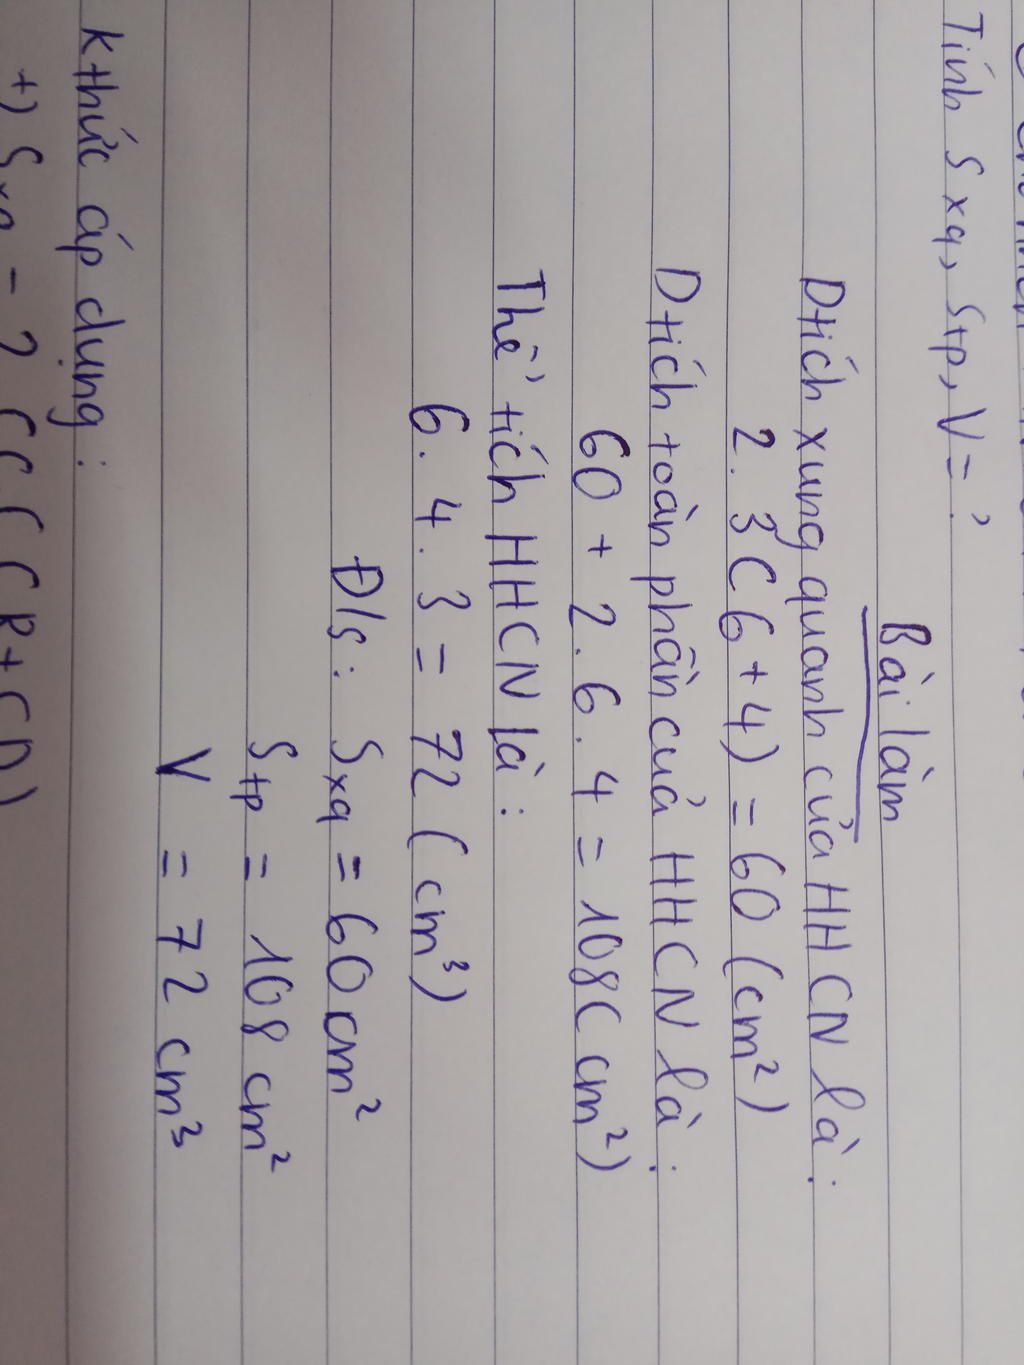 Tính Sxq, Stp, V = ?
Bài làm
Dtích xung quanh của HHCN là :
2. 3 ( 6 + 4 ) = 60 (cm²)
Dtích toàn phần của HHCN là :
60 + 2. 6. 4 = 108 ( cm²)
Thể tích HHCN là :
6. 4. 3 = 72 ( cm³)
Đ/s : Sxq = 60 cm²
Stp = 108 cm²
V = 72 cm³
kthức áp dụng :